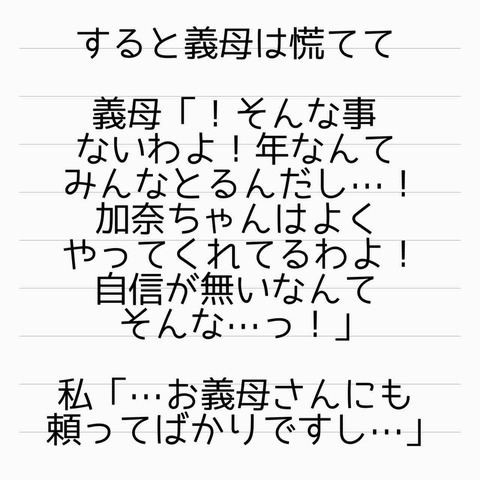 すると義母は慌てて
義母「！そんな事
ないわよ！年なんて
みんなとるんだし…！
加奈ちゃんはよく
やってくれてるわよ！
自信が無いなんて
そんな…っ！」
私「…お義母さんにも
頼ってばかりですし…」